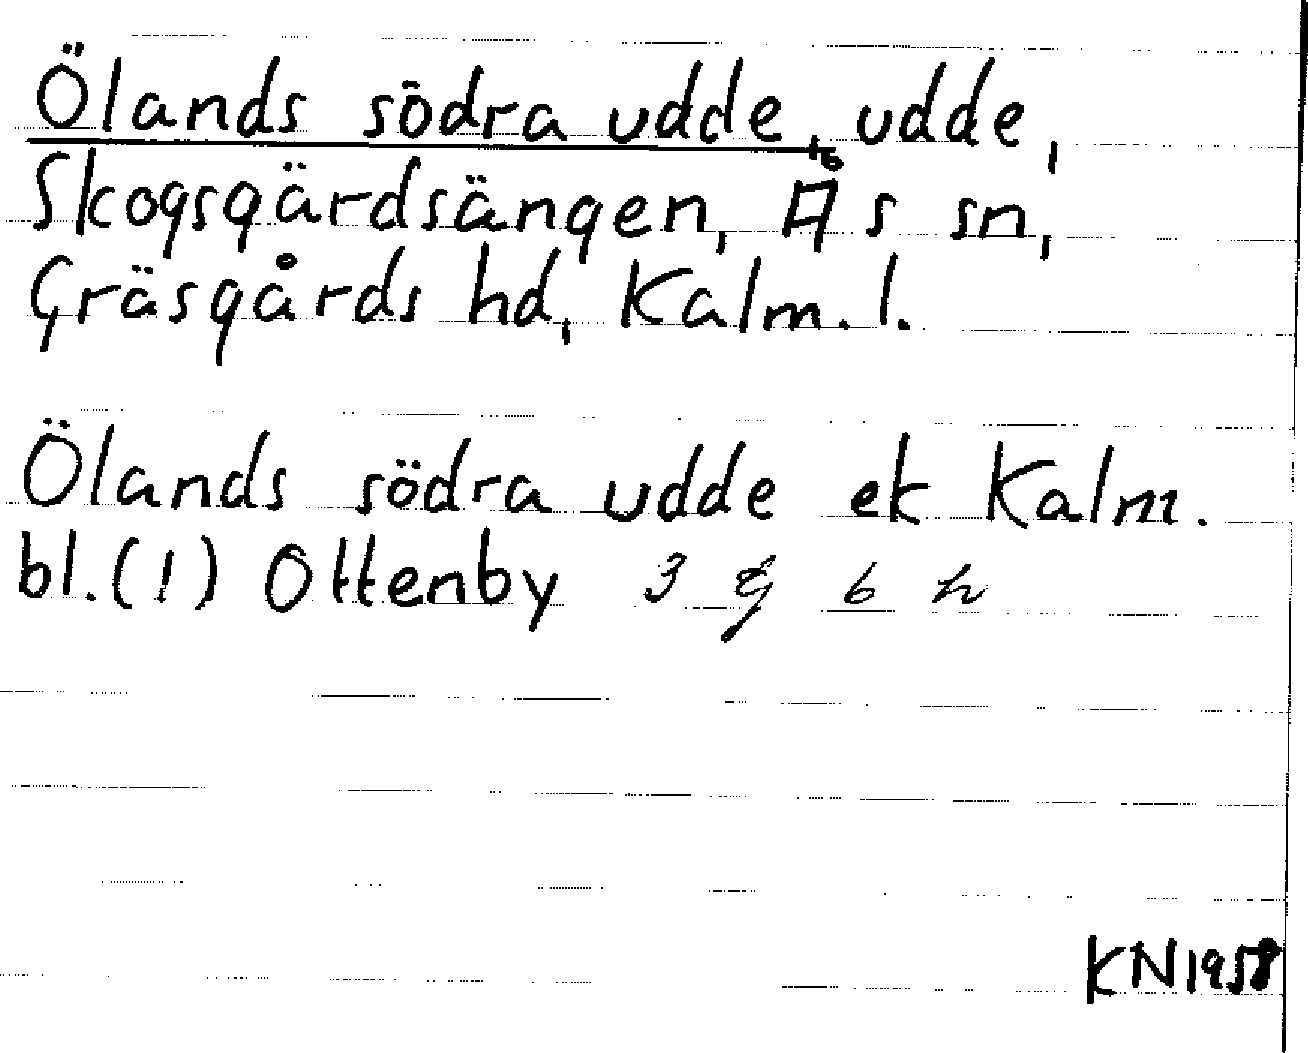 Ölands södra udde, udde,
Skogsgärdsängen, Ås sn,
Gräsgårds hd, Kalm. l.
Ölands södra udde ek Kalm.
bl. (1) Ottenby 3 g 6 h
KN1958